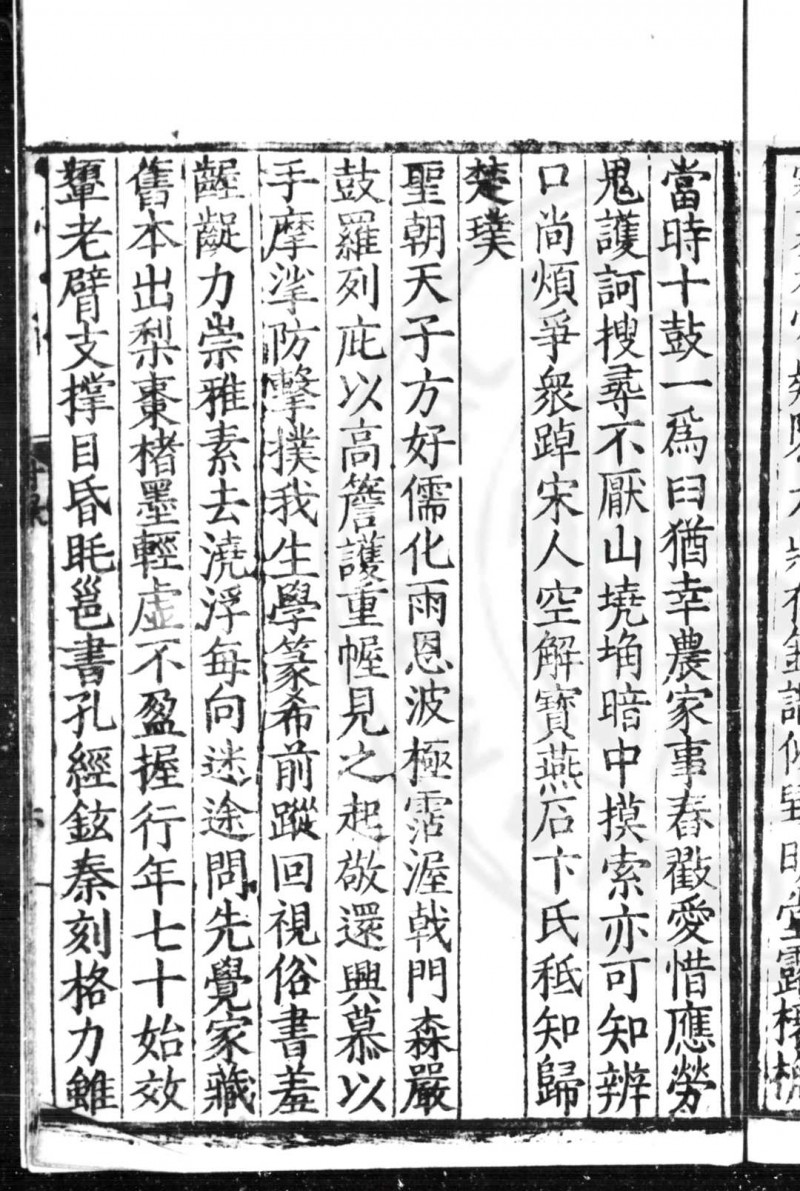 當時十鼓一爲臼猶幸農家事舂戳愛惜應勞
鬼護訶搜尋不厭山墝埆暗中摸索亦可知辨
口尚煩爭衆踔宋人空解寶燕石卞氏秪知歸
楚璞
聖朝天子方好儒化雨恩波極霑渥戟門森嚴
鼓羅列庇以高簷護重幄見之起敬還興慕以
手摩挲防擊撲我生學篆希前蹤回視俗書羞
齷齪力崇雅素去澆浮每向迷途問先覺家藏
舊本出梨棗楮墨輕虛不盈握行年七十始效
顰老臂支撐目昏眊邕書孔經鉉秦刻格力雖